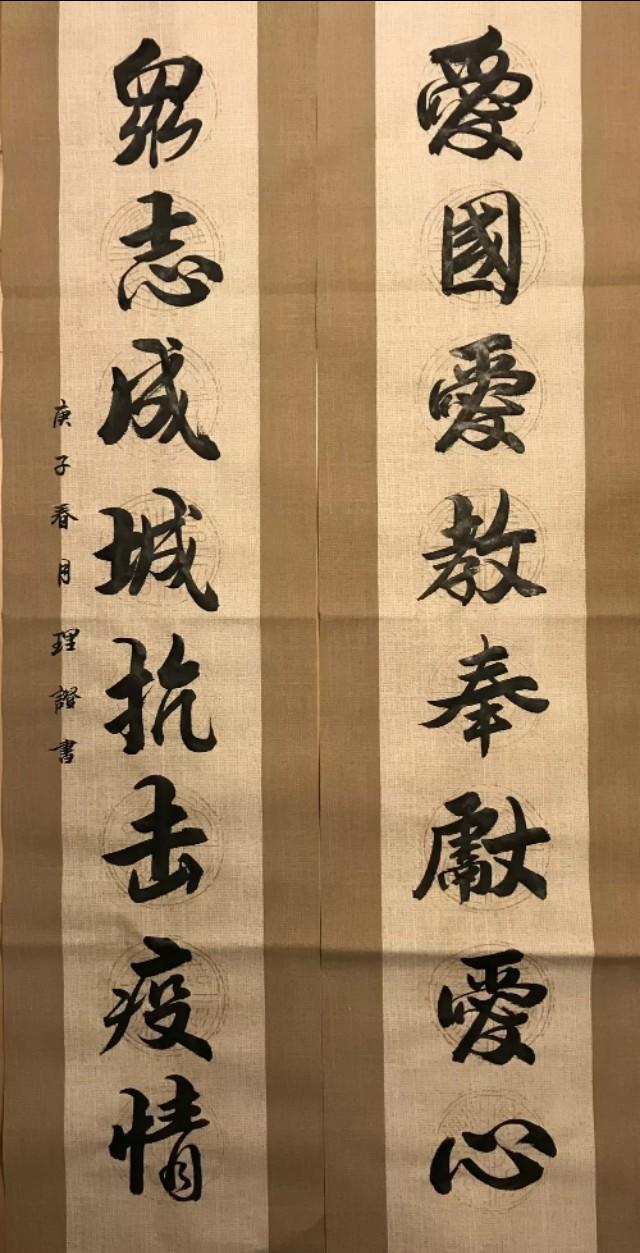 愛國愛教奉獻愛心
眾志成城抗击疫情
庚子春月理證書